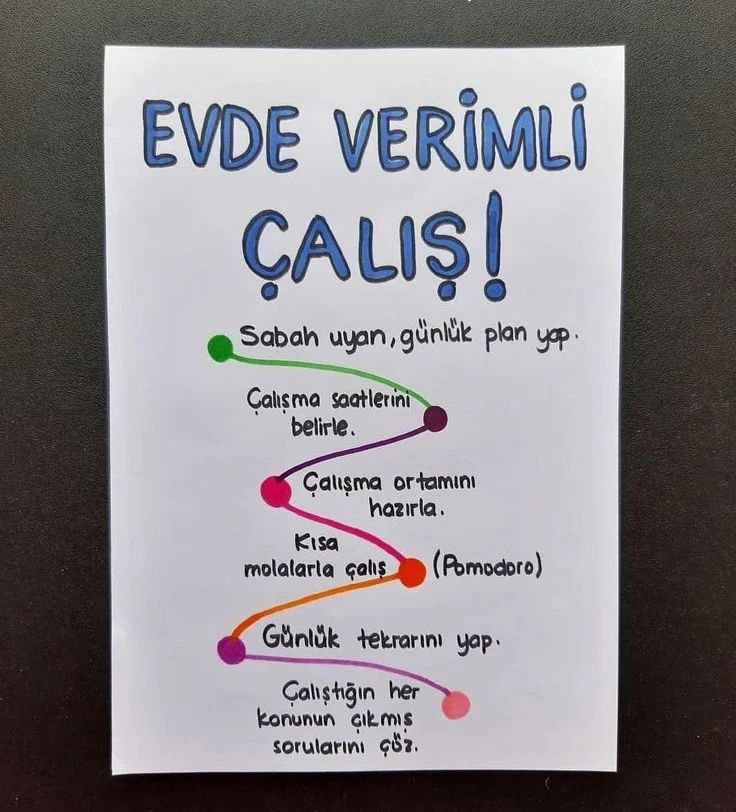 EVDE VERİMLİ
ÇALIŞ!
Sabah uyan, günlük plan yap.
Çalışma saatlerini
belirle.
Çalışma ortamını
hazırla.
Kısa
molalarla çalış (Pomodoro)
Günlük tekrarını yap.
Çalıştığın her
konunun çıkmış
sorularını çöz.